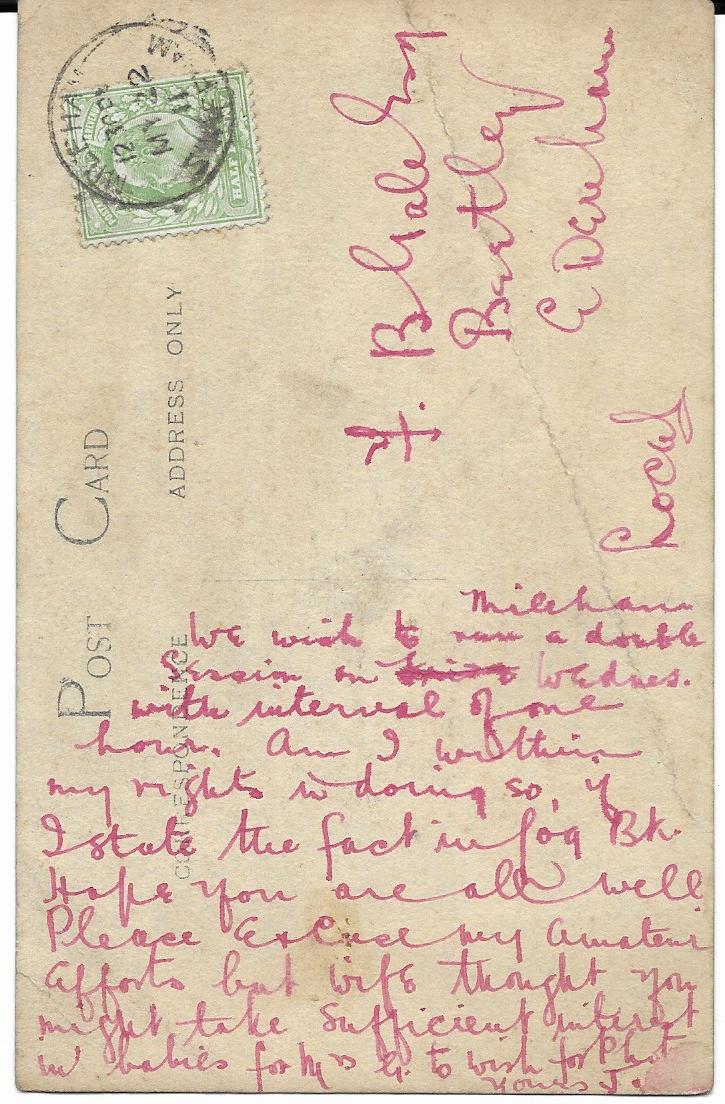 POST CARD
CORRESPONDENCE
ADDRESS ONLY
MILEHAM
12.10PM
MY 22
11
HALF
F. B Gale Esq
Bartley
E Dereham
Local
Mileham
We wish to run a double
Session on Wednes.
with interval of one
hour. Am I within
my rights in doing so, if
I state the fact in Log Bk.
Hope you are all well
Please Excuse my Amateur
Efforts but wife thought you
might take Sufficient interest
in babies for Mrs G. to wish for Phot
Yours